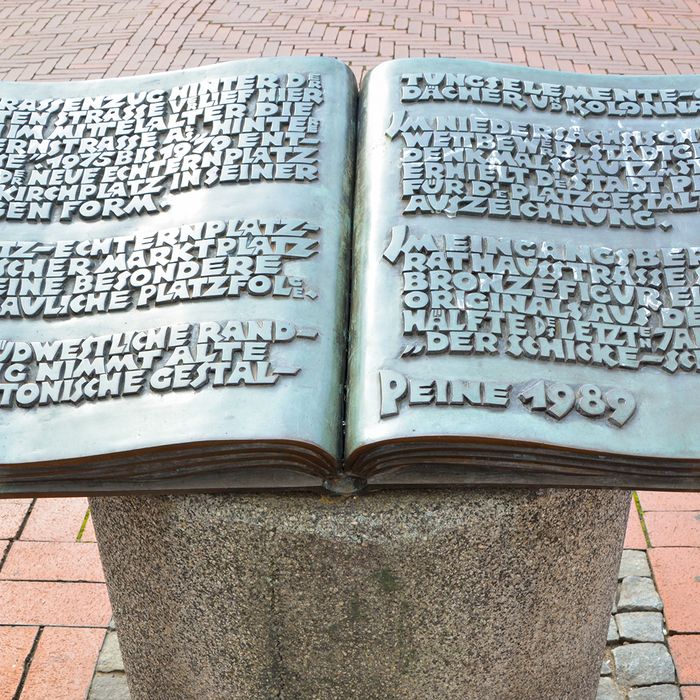 RASSENZUG HINTER DER
TEN STRASSE VERLIEF HIER
IM MITTELALTER DIE
ERNSTRASSE ALS HINTE
SE". 1975 BIS 1979 ENT-
DER NEUE ECHTERNPLATZ
KIRCHPLATZ IN SEINER
GEN FORM.
TZ-ECHTERNPLATZ-
SCHER MARKTPLATZ
EINE BESONDERE
AULICHE PLATZFOLGE.
ÜDWESTLICHE RAND-
G NIMMT ALTE
TONISCHE GESTAL-
TUNGSELEMENTE
DÄCHER UND KOLONN
IM NIEDERSÄCHSISCH
WETTBEWERB "STADTG
DENKMALSCHUTZ
ERHIELT DIE STADT P
FÜR DIE PLATZGESTAL
AUSZEICHNUNG.
IM EINGANGSBER
RATHAUSSTRASSE
BRONZEFIGUR EI
ORIGINALS AUS DE
HÄLFTE DES LETZTEN JA
"DER SCHICKE-SCH
PEINE 1989